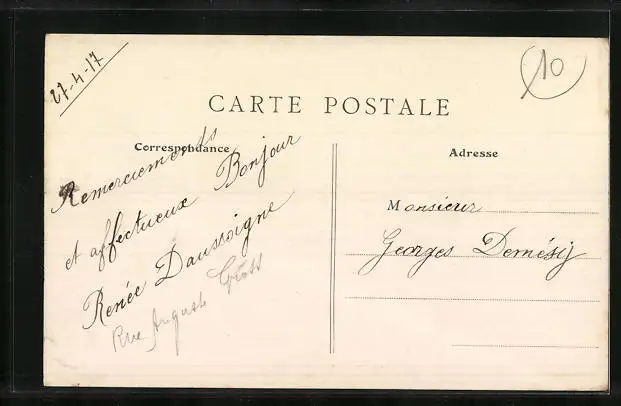 27-4-17
10
CARTE POSTALE
Correspondance
Remerciements
et affectueux Bonjour
Renée Daussoigne
Rue Auguste
Adresse
Monsieur
Georges Demésy